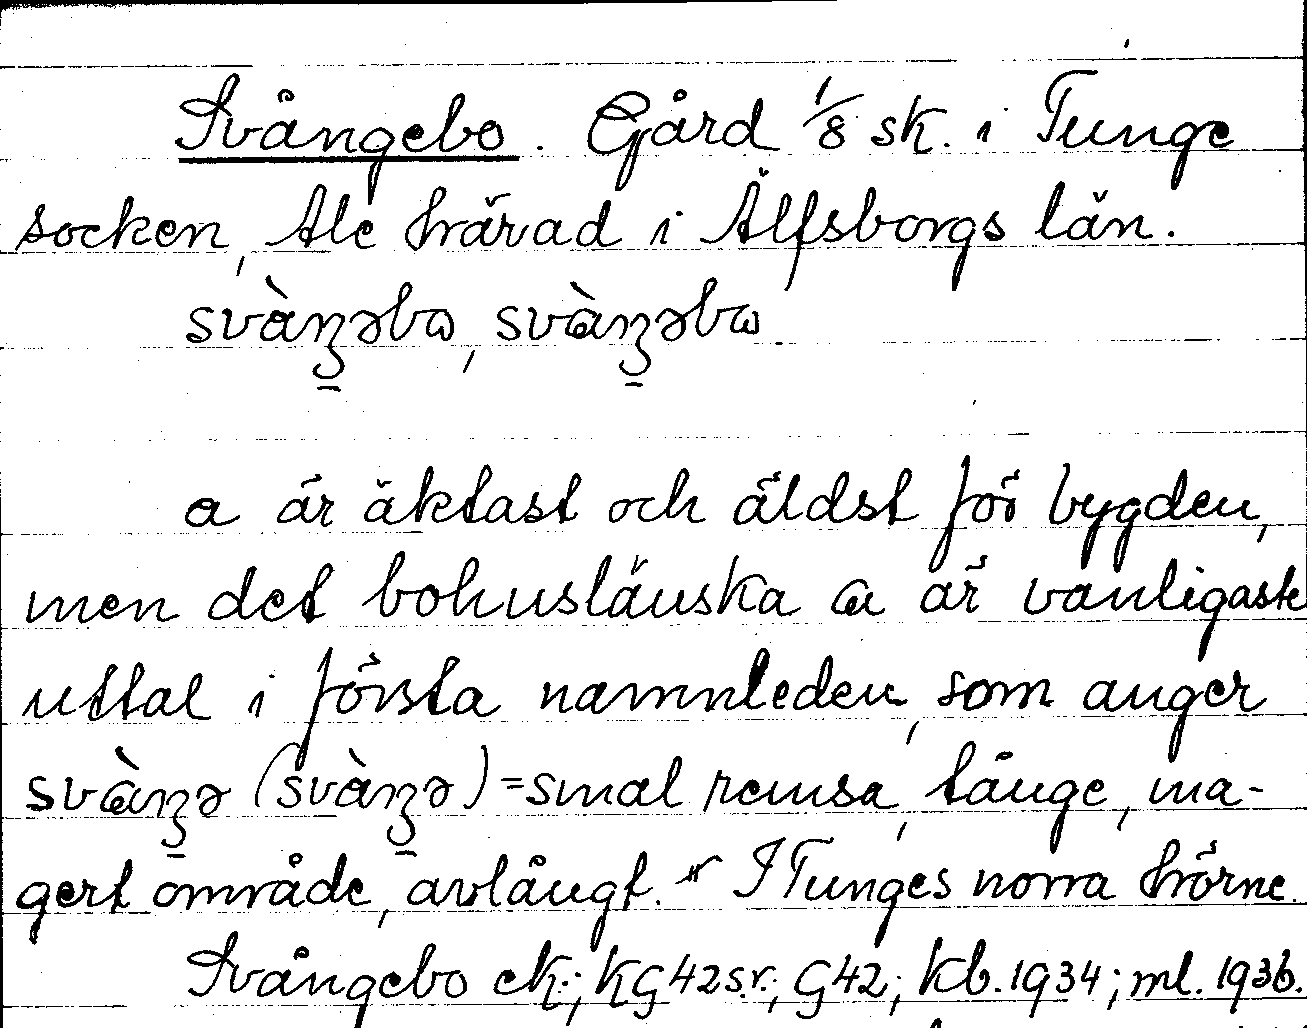 Svångebo. Gård 1/8 sk. i Tunge
socken, Ale härad i Älfsborgs län.
svàŋ̱əbω, svàŋ̱əbω.
a är äktast och äldst för bygden,
men det bohuslänska ɑ är vanligaste
uttal i första namnleden, som anger
svàŋ̱ə (svàŋ̱ə) = smal remsa, tånge, ma-
gert område, avlångt. * I Tunges norra hörne.
Svångebo ek.; KG42s.r.; G42; kb. 1934; ml. 1936.